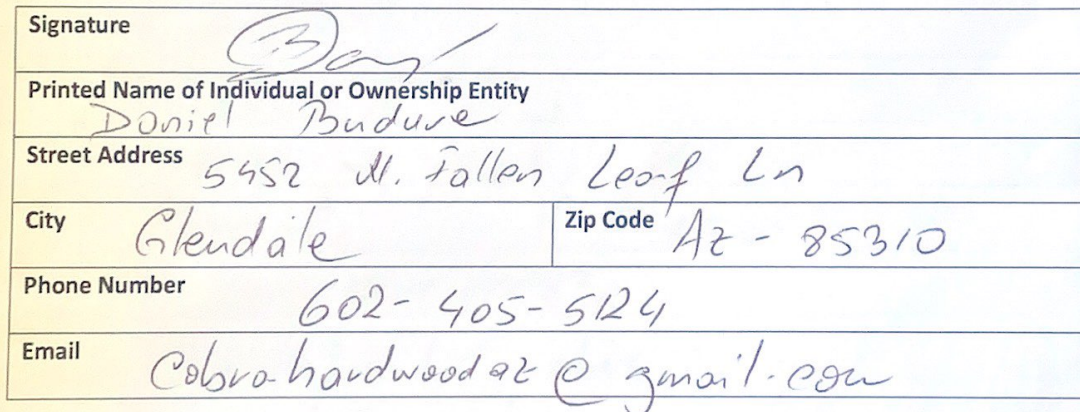 Signature
Printed Name of Individual or Ownership Entity
Daniel Budure
Street Address 5452 W. Fallen Leaf Ln
City Glendale Zip Code Az - 85310
Phone Number 602-405-5124
Email Cobrahardwoodaz@gmail.com